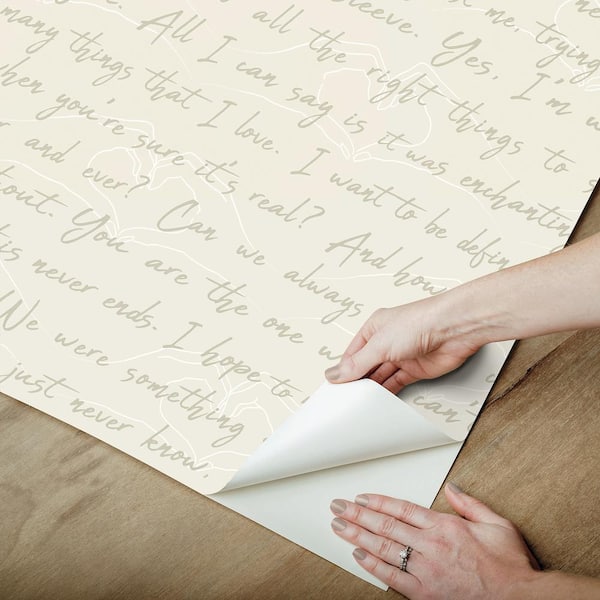 sleeve. me, trying
many things All I can say is it was enchanting
when you're sure it's all the right things to s
that I love. Yes, I'm
and ever? I want to be defin
out. Can we always And how
You are the one w
is never ends. I hope to can't
We were something
just never know,
real?